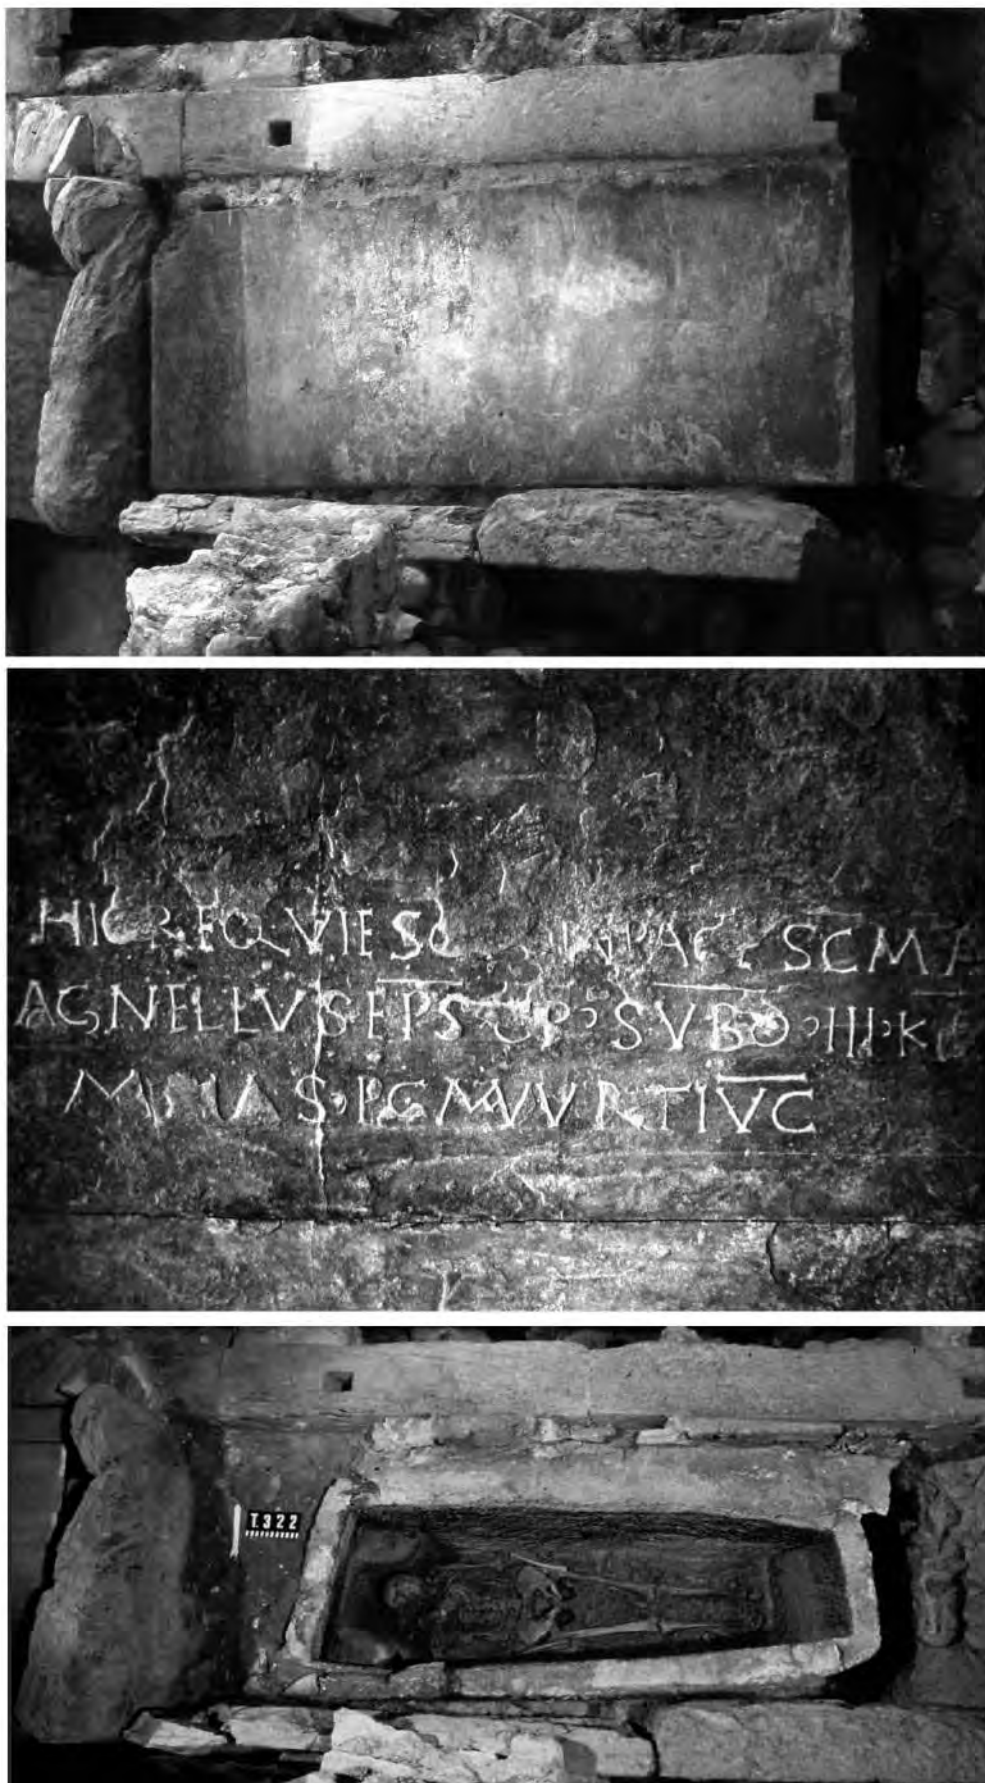 HIC REQVIESC IN PACE SCM
AGNELLVS EPS OP SVB D III K
MAIAS PC MAVVRTI VC
T.322